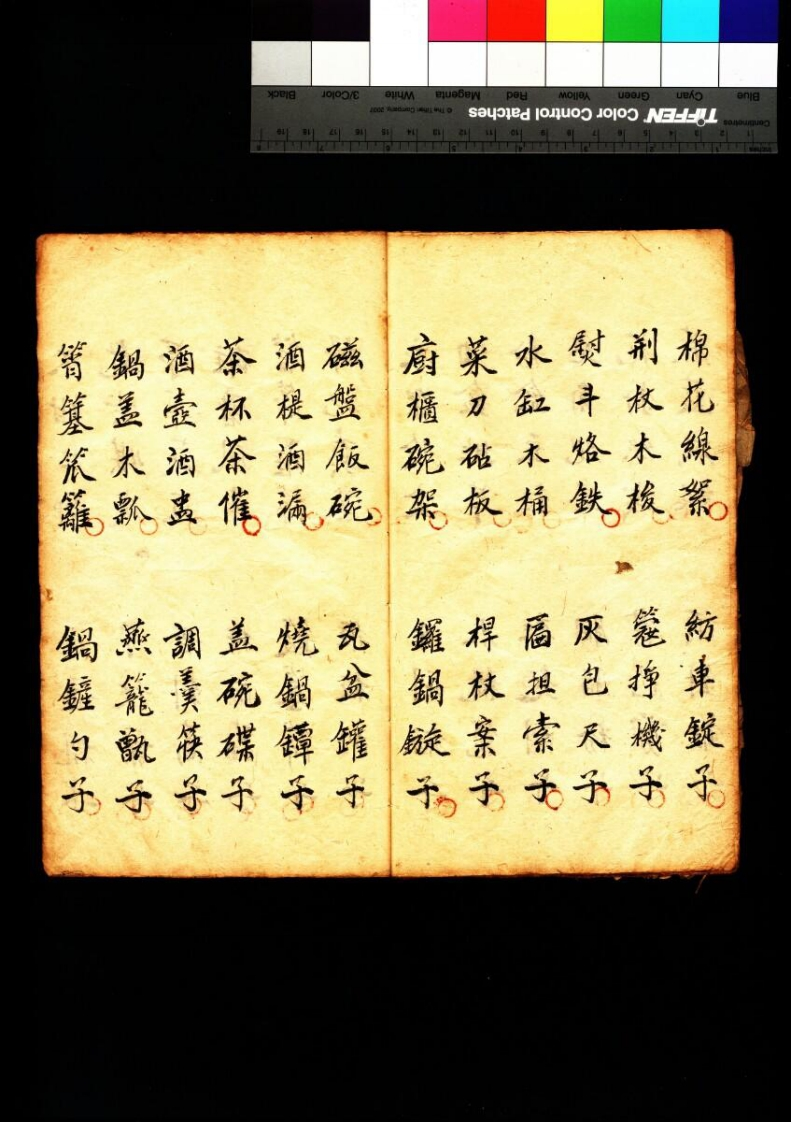 棉花線絮
紡車錠子
荆杖木梭
篗掙機子
熨斗烙鉄
灰包尺子
水缸木桶
匾担索子
菜刀砧板
桿杖案子
廚櫃碗架
鑼鍋鏇子
磁盤飯碗
瓦盆鑵子
酒榥酒漏
燒鍋鐔子
茶杯茶催
盖碗碟子
酒壺酒盅
調羹筷子
鍋盖木瓢
燕籠甑子
筲篡笊籬
鍋鏟勺子
TIFFEN Color Control Patches
© The Tiffen Company, 2007
Centimetres
Inches
Blue Cyan Green Yellow Red Magenta White 3/Color Black